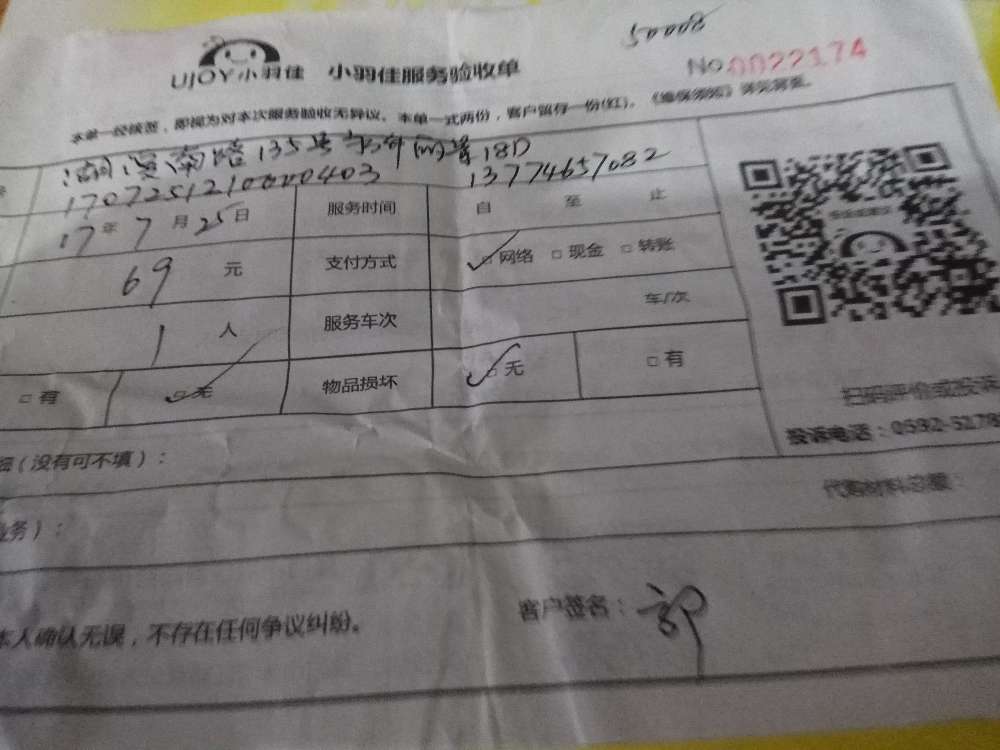 80005
UJOY小羽佳 小羽佳服务验收单 No 0022174
本单一经核签，即视为对本次服务验收无异议。本单一式两份，客户留存一份(红)。《维保须知》详见背面。
湖滨南路135号 18D
1707251210000403 13774657082
17年7月25日 服务时间 自 至 止
69 元 支付方式 ☑网络 □现金 □转账
1 人 服务车次 车/次
□有 ☑无 物品损坏 ☑无 □有
扫码评价或投诉
投诉电话：0592-5178
（没有可不填）：
代购材料总额：
业务）：
本人确认无误，不存在任何争议纠纷。 客户签名：郭